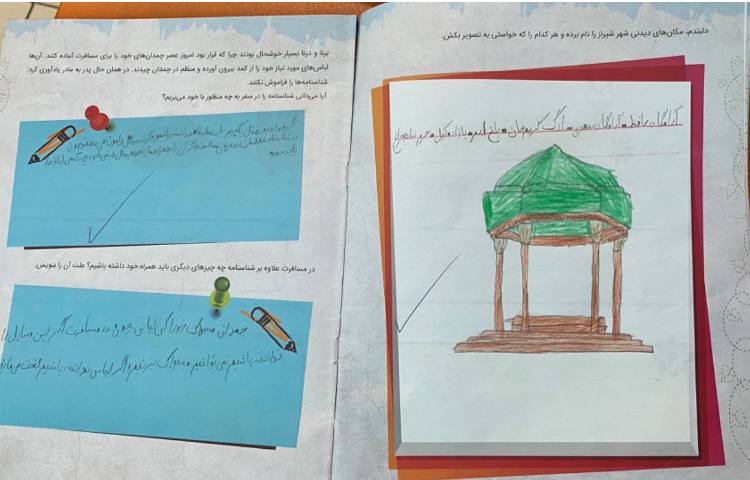 دلبندم، مکان‌های دیدنی شهر شیراز را نام برده و هر کدام را که خواستی به تصویر بکش.
آرامگاه حافظ - آرامگاه سعدی - ارگ کریم خان - باغ ارم - بازار وکیل - حرم شاهچراغ
برنا و درنا بسیار خوشحال بودند چرا که قرار بود امروز عصر چمدان‌های خود را برای مسافرت آماده کنند. آن‌ها
لباس‌های مورد نیاز خود را از کمد بیرون آورده و منظم در چمدان چیدند. در همان حال پدر به مادر یادآوری کرد:
شناسنامه‌ها را فراموش نکنند.
آیا می‌دانی شناسنامه را در سفر به چه منظور با خود می‌بریم؟
در مسافرت علاوه بر شناسنامه چه چیزهای دیگری باید همراه خود داشته باشیم؟ علت آن را بنویس.
چمدان مسواک خوراکی لباس چون در مسافرت اگر این وسایل را
نداشته باشیم نمی توانیم مسواک بزنیم و اگر لباس نداشته باشیم لخت می‌مانیم